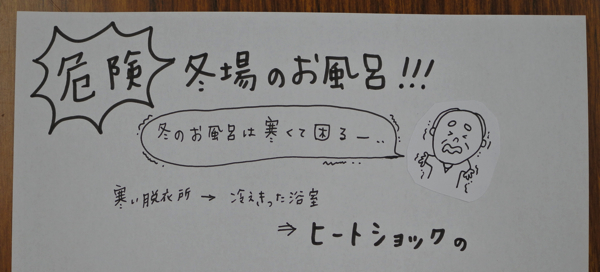 危険 冬場のお風呂!!!
冬のお風呂は寒くて困るー..
寒い脱衣所 → 冷えきった浴室
⇒ ヒートショックの